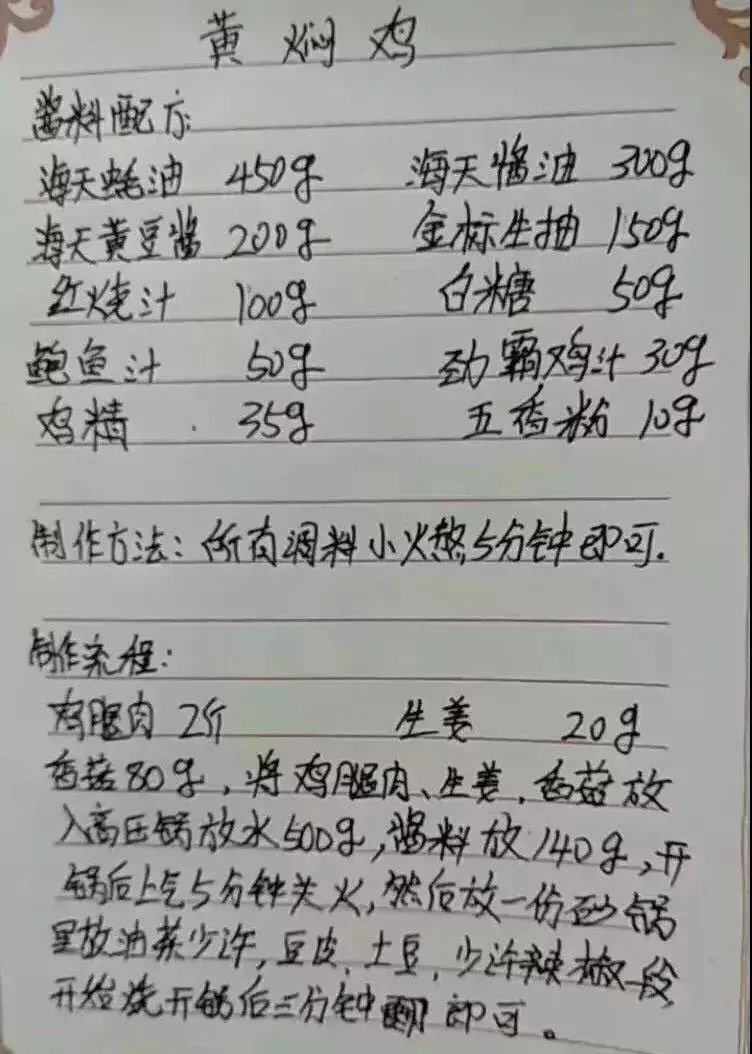 黄焖鸡
酱料配方
海天蚝油 450g 海天酱油 300g
海天黄豆酱 200g 金标生抽 150g
红烧汁 100g 白糖 50g
鲍鱼汁 50g 劲霸鸡汁 30g
鸡精 35g 五香粉 10g
制作方法：所有调料小火熬5分钟即可.
制作流程：
鸡腿肉 2斤 生姜 20g
香菇80g，将鸡腿肉、生姜，香菇放
入高压锅放水500g，酱料放140g，开
锅后上气5分钟关火，然后放一份砂锅
里放油菜少许，豆皮、土豆，少许辣椒段
开始烧开锅后三分钟即可。